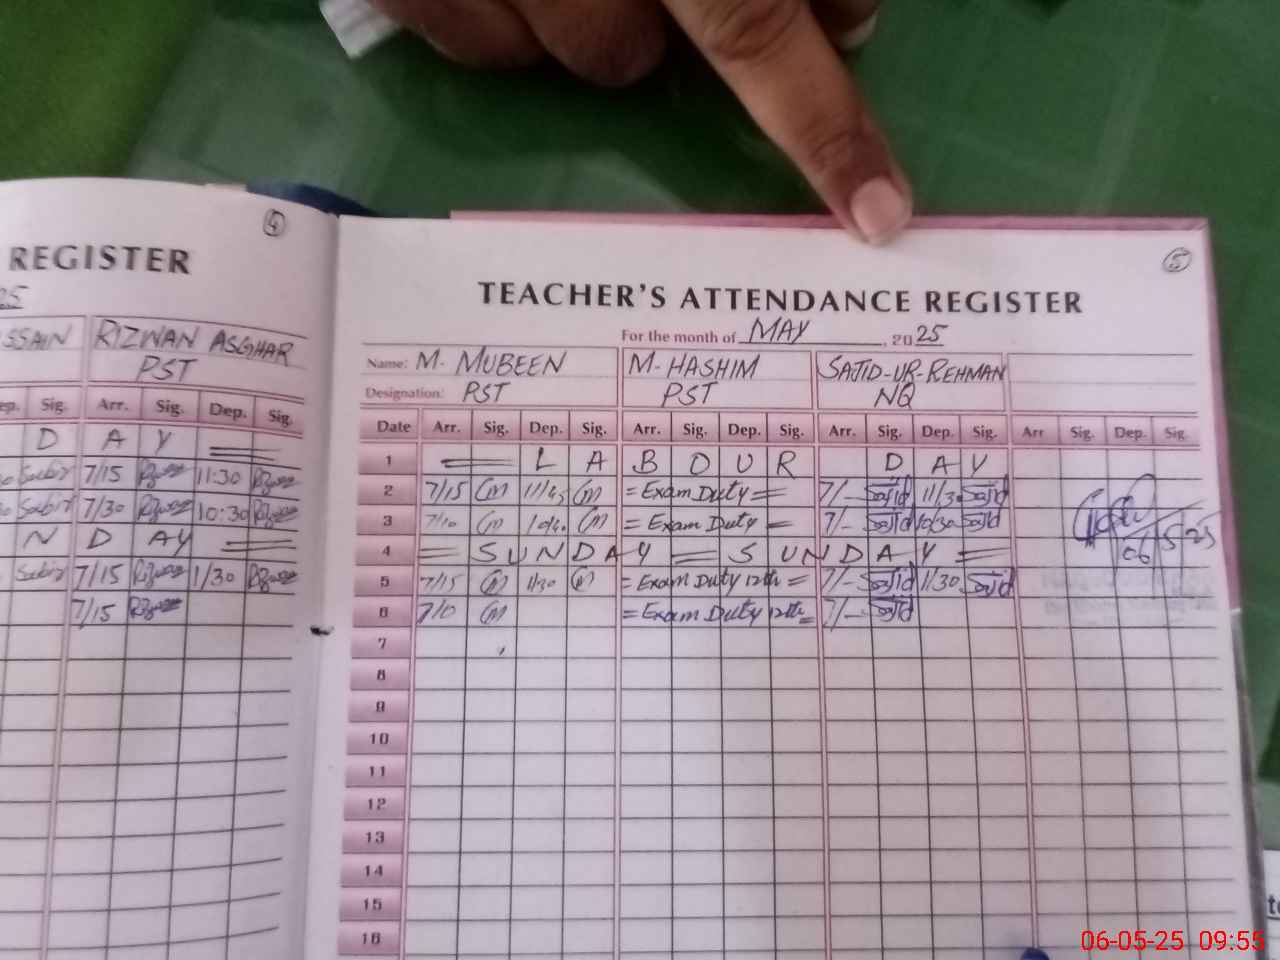 ④
REGISTER
25
SSAIN RIZWAN ASGHAR
PST
ep. Sig. Arr. Sig. Dep. Sig.
D A Y
Sabir 7/15 Rizwan 11:30 Rizwan
Sabir 7/30 Rizwan 10:30 Rizwan
N D AY
Sabir 7/15 Rizwan 1/30 Rizwan
7/15 Rizwan
⑤
TEACHER'S ATTENDANCE REGISTER
For the month of MAY, 2025
Name: M. MUBEEN M. HASHIM SAJID-UR-REHMAN
Designation: PST PST NQ
Date Arr. Sig. Dep. Sig. Arr. Sig. Dep. Sig. Arr. Sig. Dep. Sig. Arr Sig. Dep. Sig.
1 = L A B O U R D A Y
2 7/15 M 11/45 M = Exam Duty = 7/- Sajid 11/3 Sajid
3 7/10 M 10/40 M = Exam Duty = 7/- Sajid 10/30 Sajid
4 = S U N D A Y = S U N D A Y =
5 7/15 M 1/30 M = Exam Duty 12th = 7/- Sajid 1/30 Sajid
6 7/0 M = Exam Duty 12th = 7/- Sajid
06/5/25
7
8
9
10
11
12
13
14
15
16
06-05-25 09:55